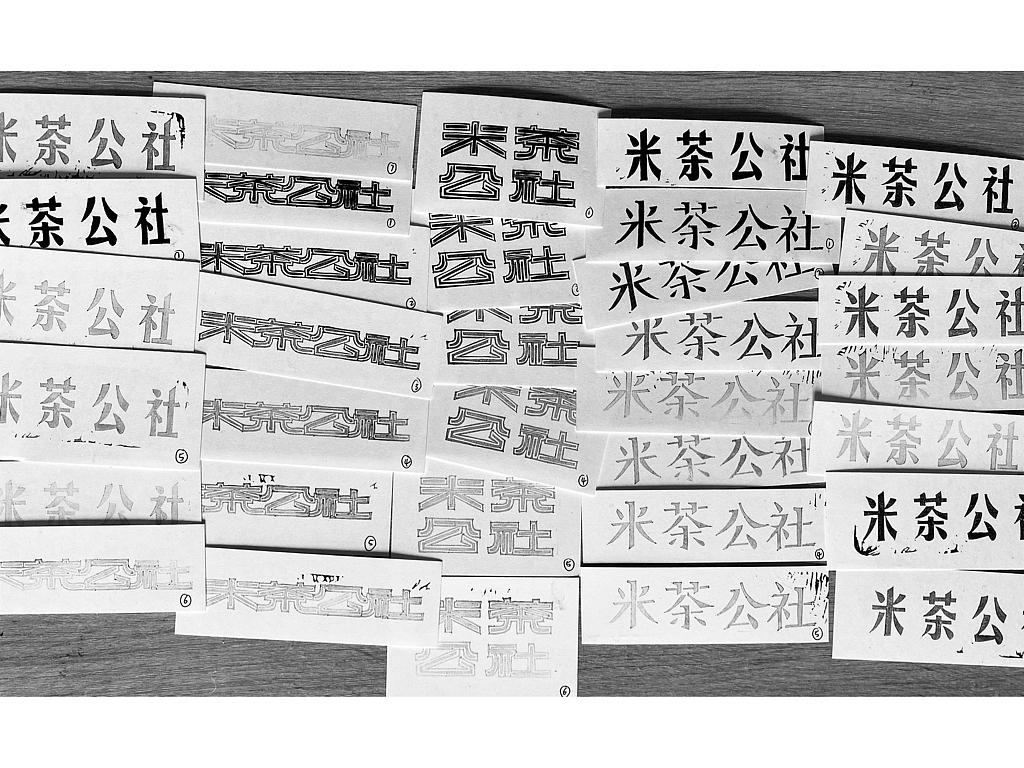 米茶公社
米茶公社
米茶公社
米茶公社 ⑤
米茶公社
米茶公社 ⑥
米茶公社 ⑦
米茶公社 ①
米茶公社 ②
米茶公社 ③
米茶公社 ④
茶公社 ⑤
米茶公社
米茶
公社 ①
米茶
公社
米茶
公社
米茶
公社 ④
米茶
公社 ⑥
米茶
公社 ⑥
米茶公社
米茶公社 ①
米茶公社
米茶公社
米茶公社
米茶公社
米茶公社 ④
米茶公社 ⑤
米茶公社 ②
米茶公社
米茶公社
米茶公社
米茶公社
米茶公
米茶公